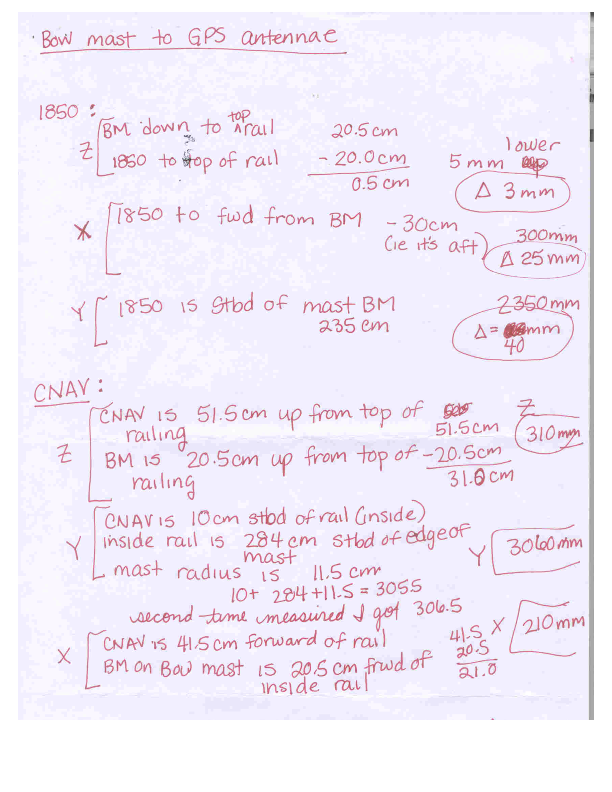 Bow mast to GPS antennae
1850 :
Z BM down to top rail 20.5 cm
1850 to top of rail - 20.0cm 5 mm lower
0.5 cm Δ 3 mm
X 1850 to fwd from BM - 30cm
(ie it's aft) 300mm
Δ 25mm
Y 1850 is Stbd of mast BM 2350mm
235 cm Δ = mm
40
CNAV :
Z CNAV is 51.5cm up from top of 51.5cm Z
railing 310mm
BM is 20.5cm up from top of -20.5cm
railing 31.0 cm
CNAV is 10cm stbd of rail (inside)
Y inside rail is 284 cm stbd of edge of Y 3060mm
mast
mast radius is 11.5 cm
10+ 284+11.5 = 305.5
second time measured I got 306.5
X CNAV is 41.5cm forward of rail 41.5 X 210mm
BM on Bow mast is 20.5 cm frwd of 20.5
inside rail 21.0